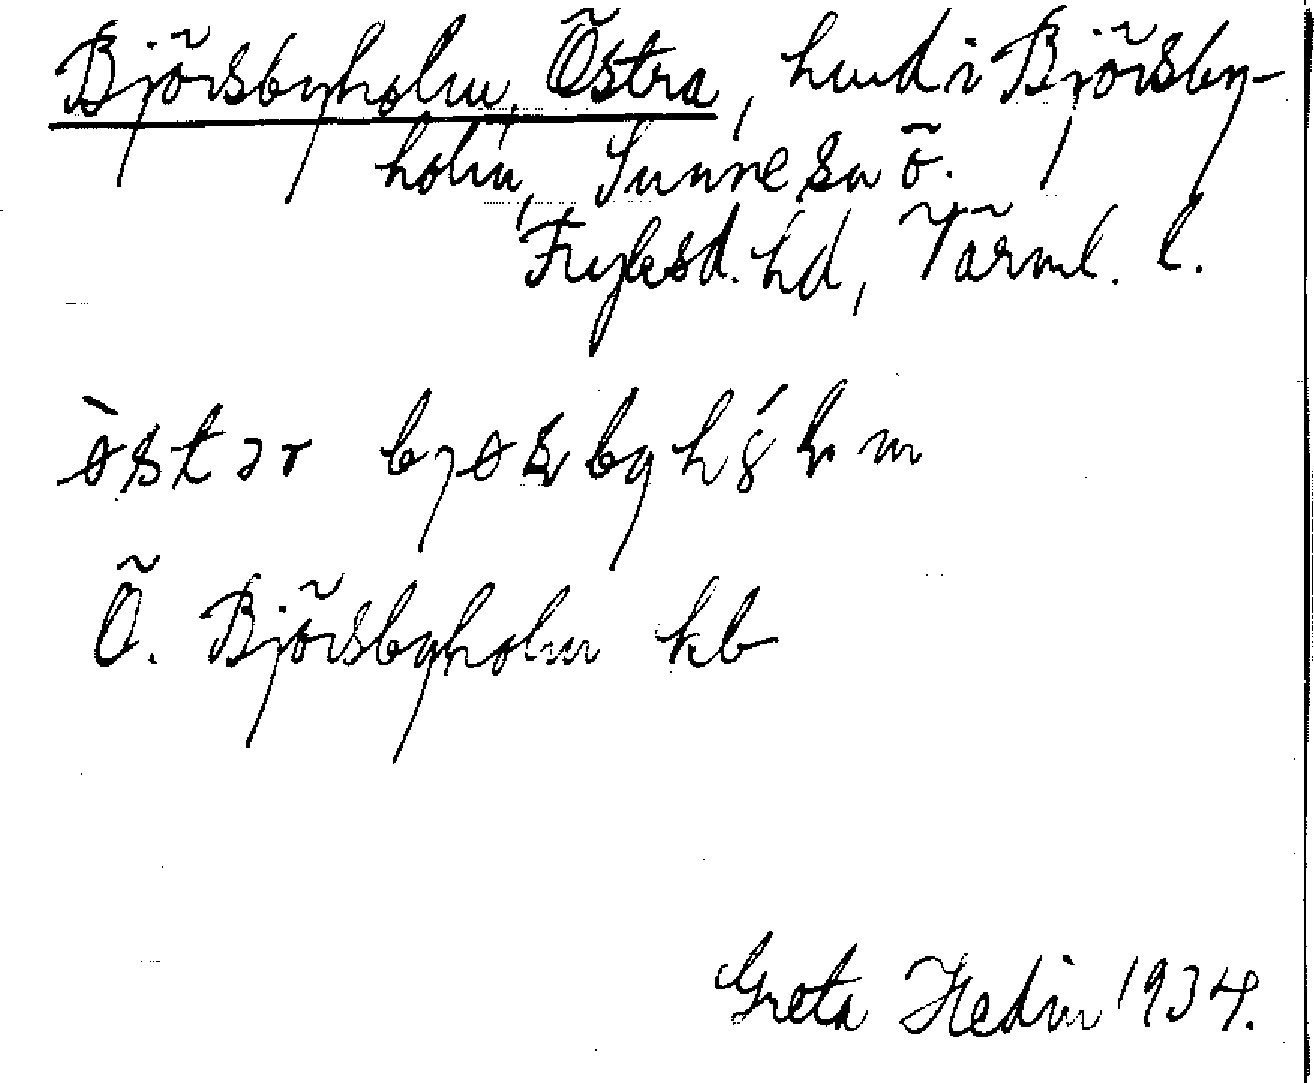 Björsbyholm, Östra, hmd i Björsby-
holm, Sunne sn ö.
Fryksd. hd, Värml. l.
Ö. Björsbyholm kb
Greta Hedin 1934.